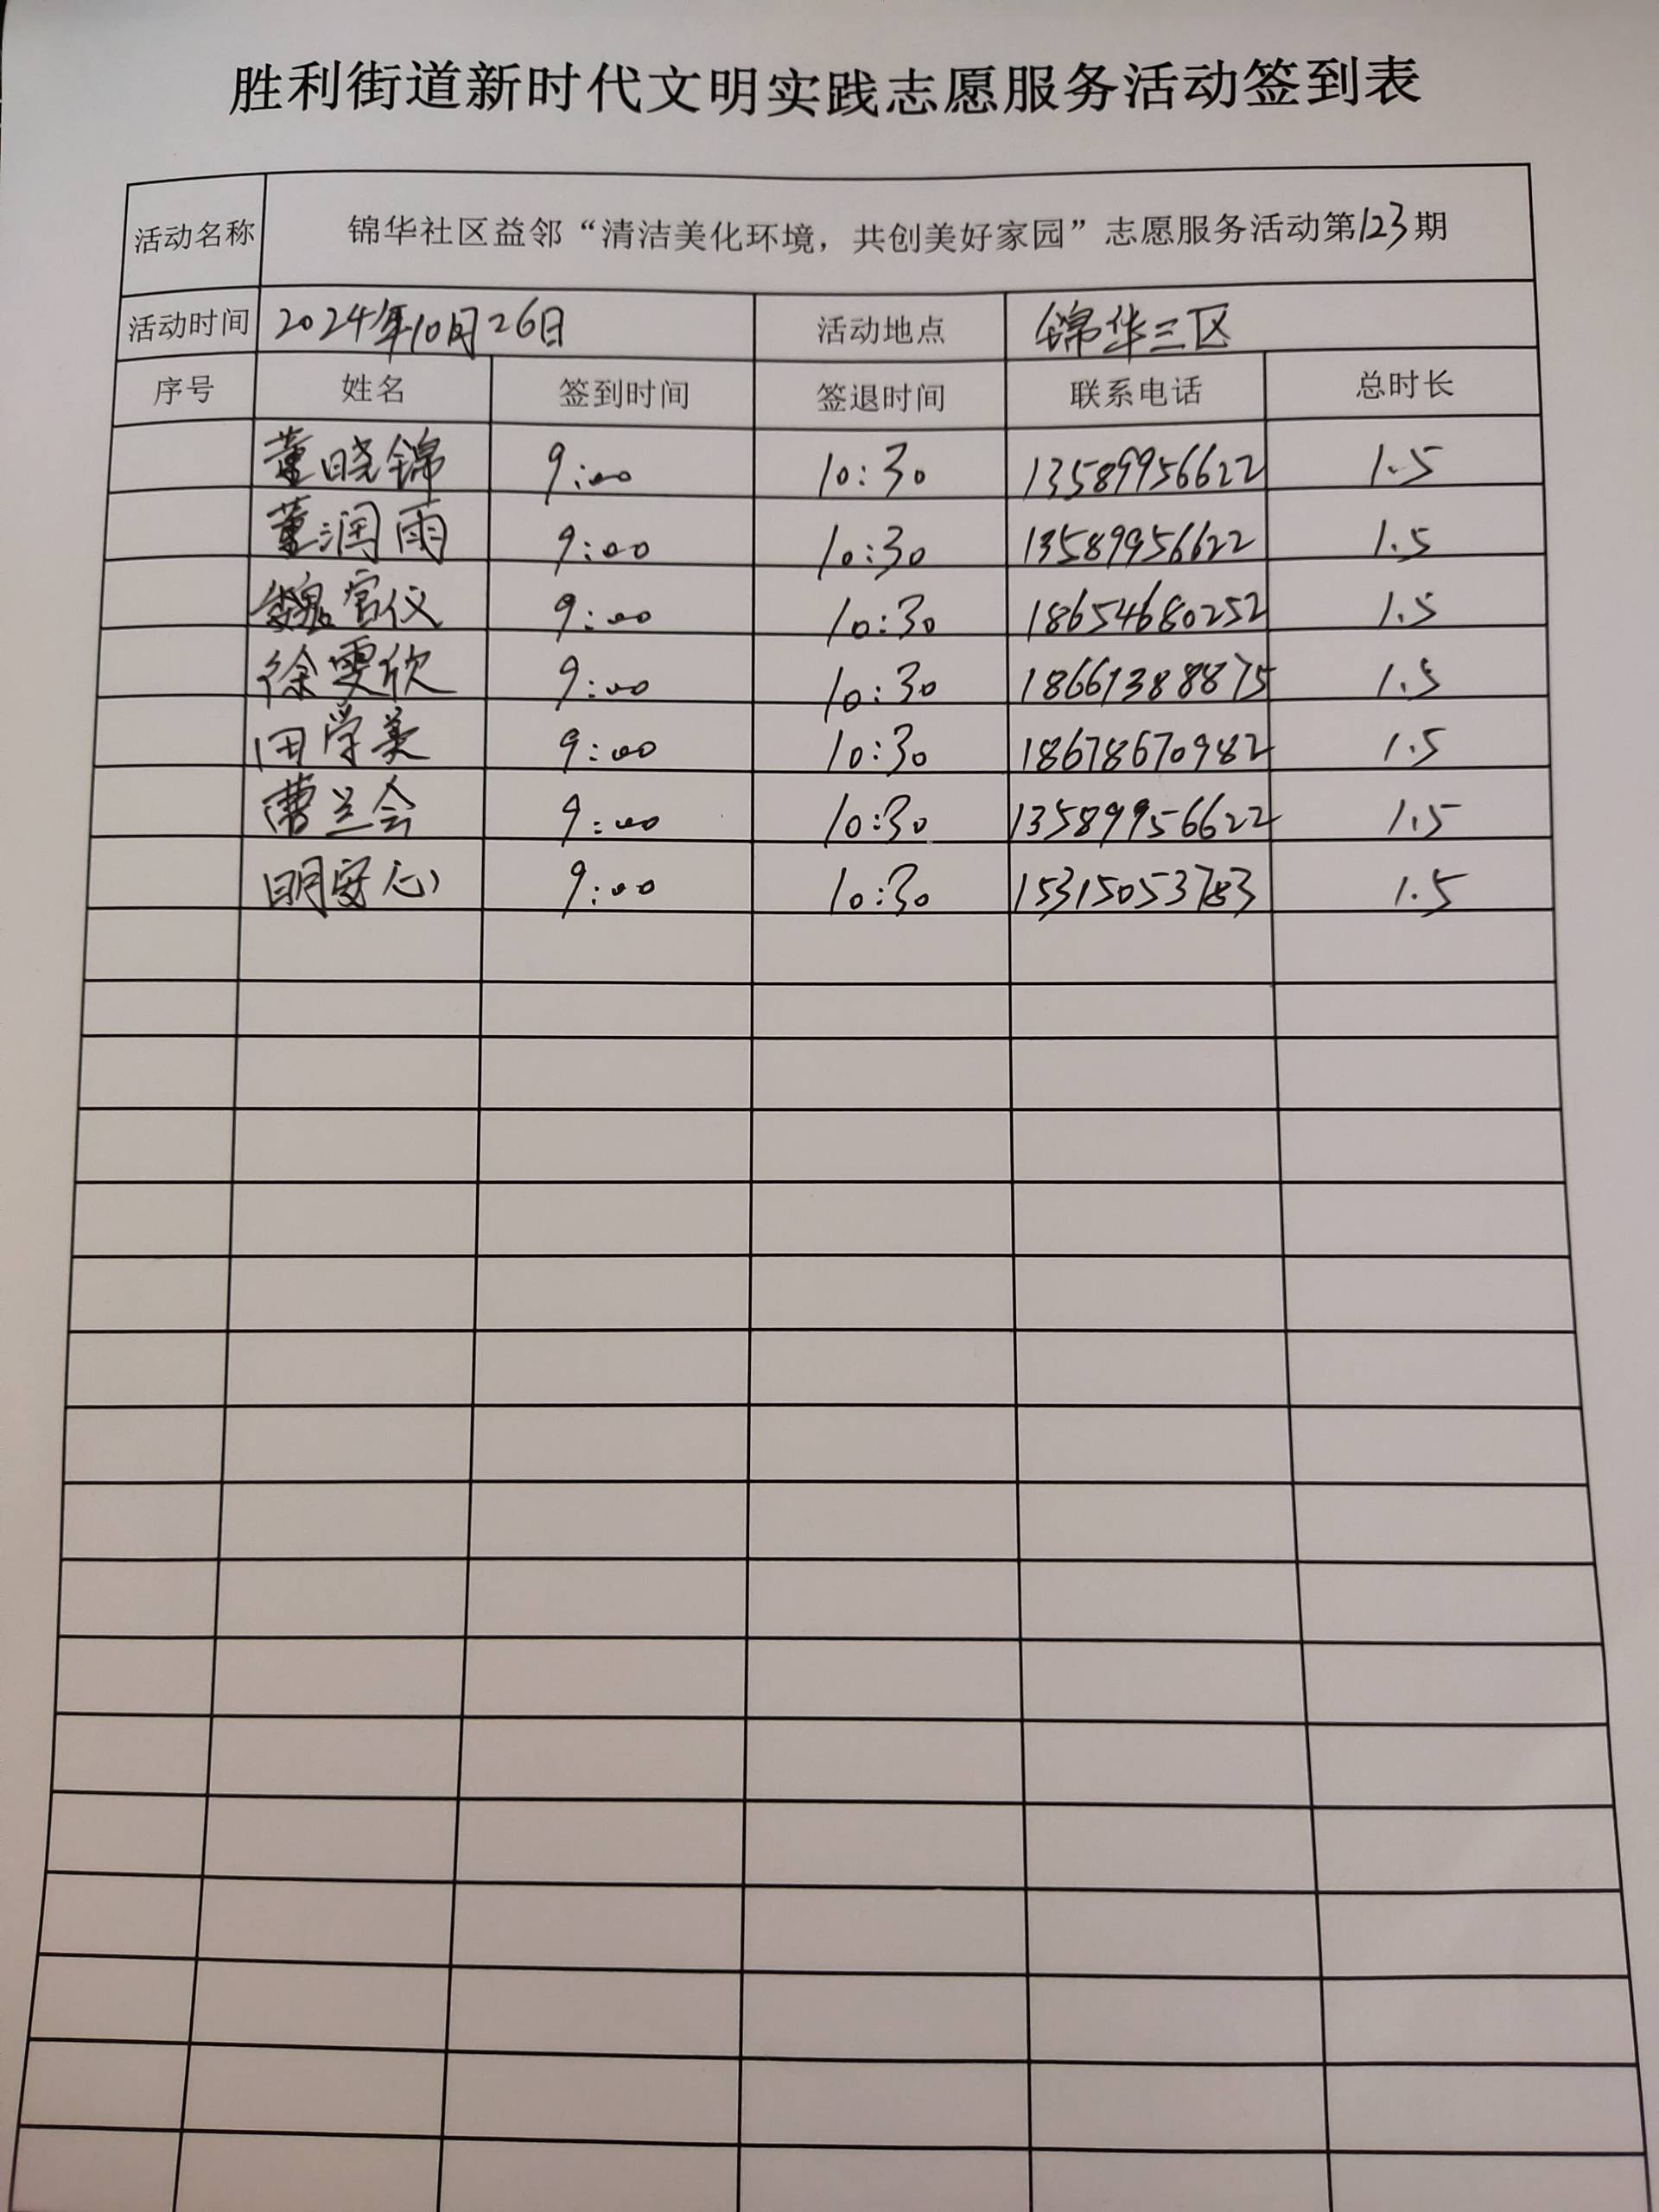 胜利街道新时代文明实践志愿服务活动签到表
活动名称 锦华社区益邻“清洁美化环境，共创美好家园”志愿服务活动第123期
活动时间 2024年10月26日 活动地点 锦华三区
序号 姓名 签到时间 签退时间 联系电话 总时长
董晓锦 9:00 10:30 13589956622 1.5
董润雨 9:00 10:30 13589956622 1.5
魏官仪 9:00 10:30 18654680252 1.5
徐雯欣 9:00 10:30 18661388875 1.5
田学美 9:00 10:30 18678670982 1.5
曹兰会 9:00 10:30 13589956622 1.5
明安心 9:00 10:30 15315053783 1.5